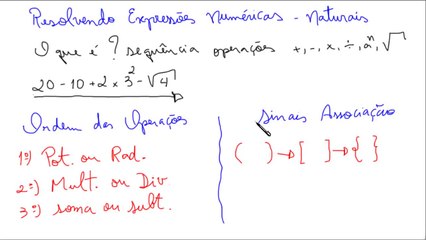 Resolvendo Expressões Numéricas - Naturais
O que é? sequência operações +, -, x, ÷, aⁿ, √
20 - 10 + 2 x 3² - √4
Ordem das Operações
1º) Pot. ou Rad.
2º) Mult. ou Div
3º) soma ou subt.
Sinais Associação
( ) → [ ] → { }